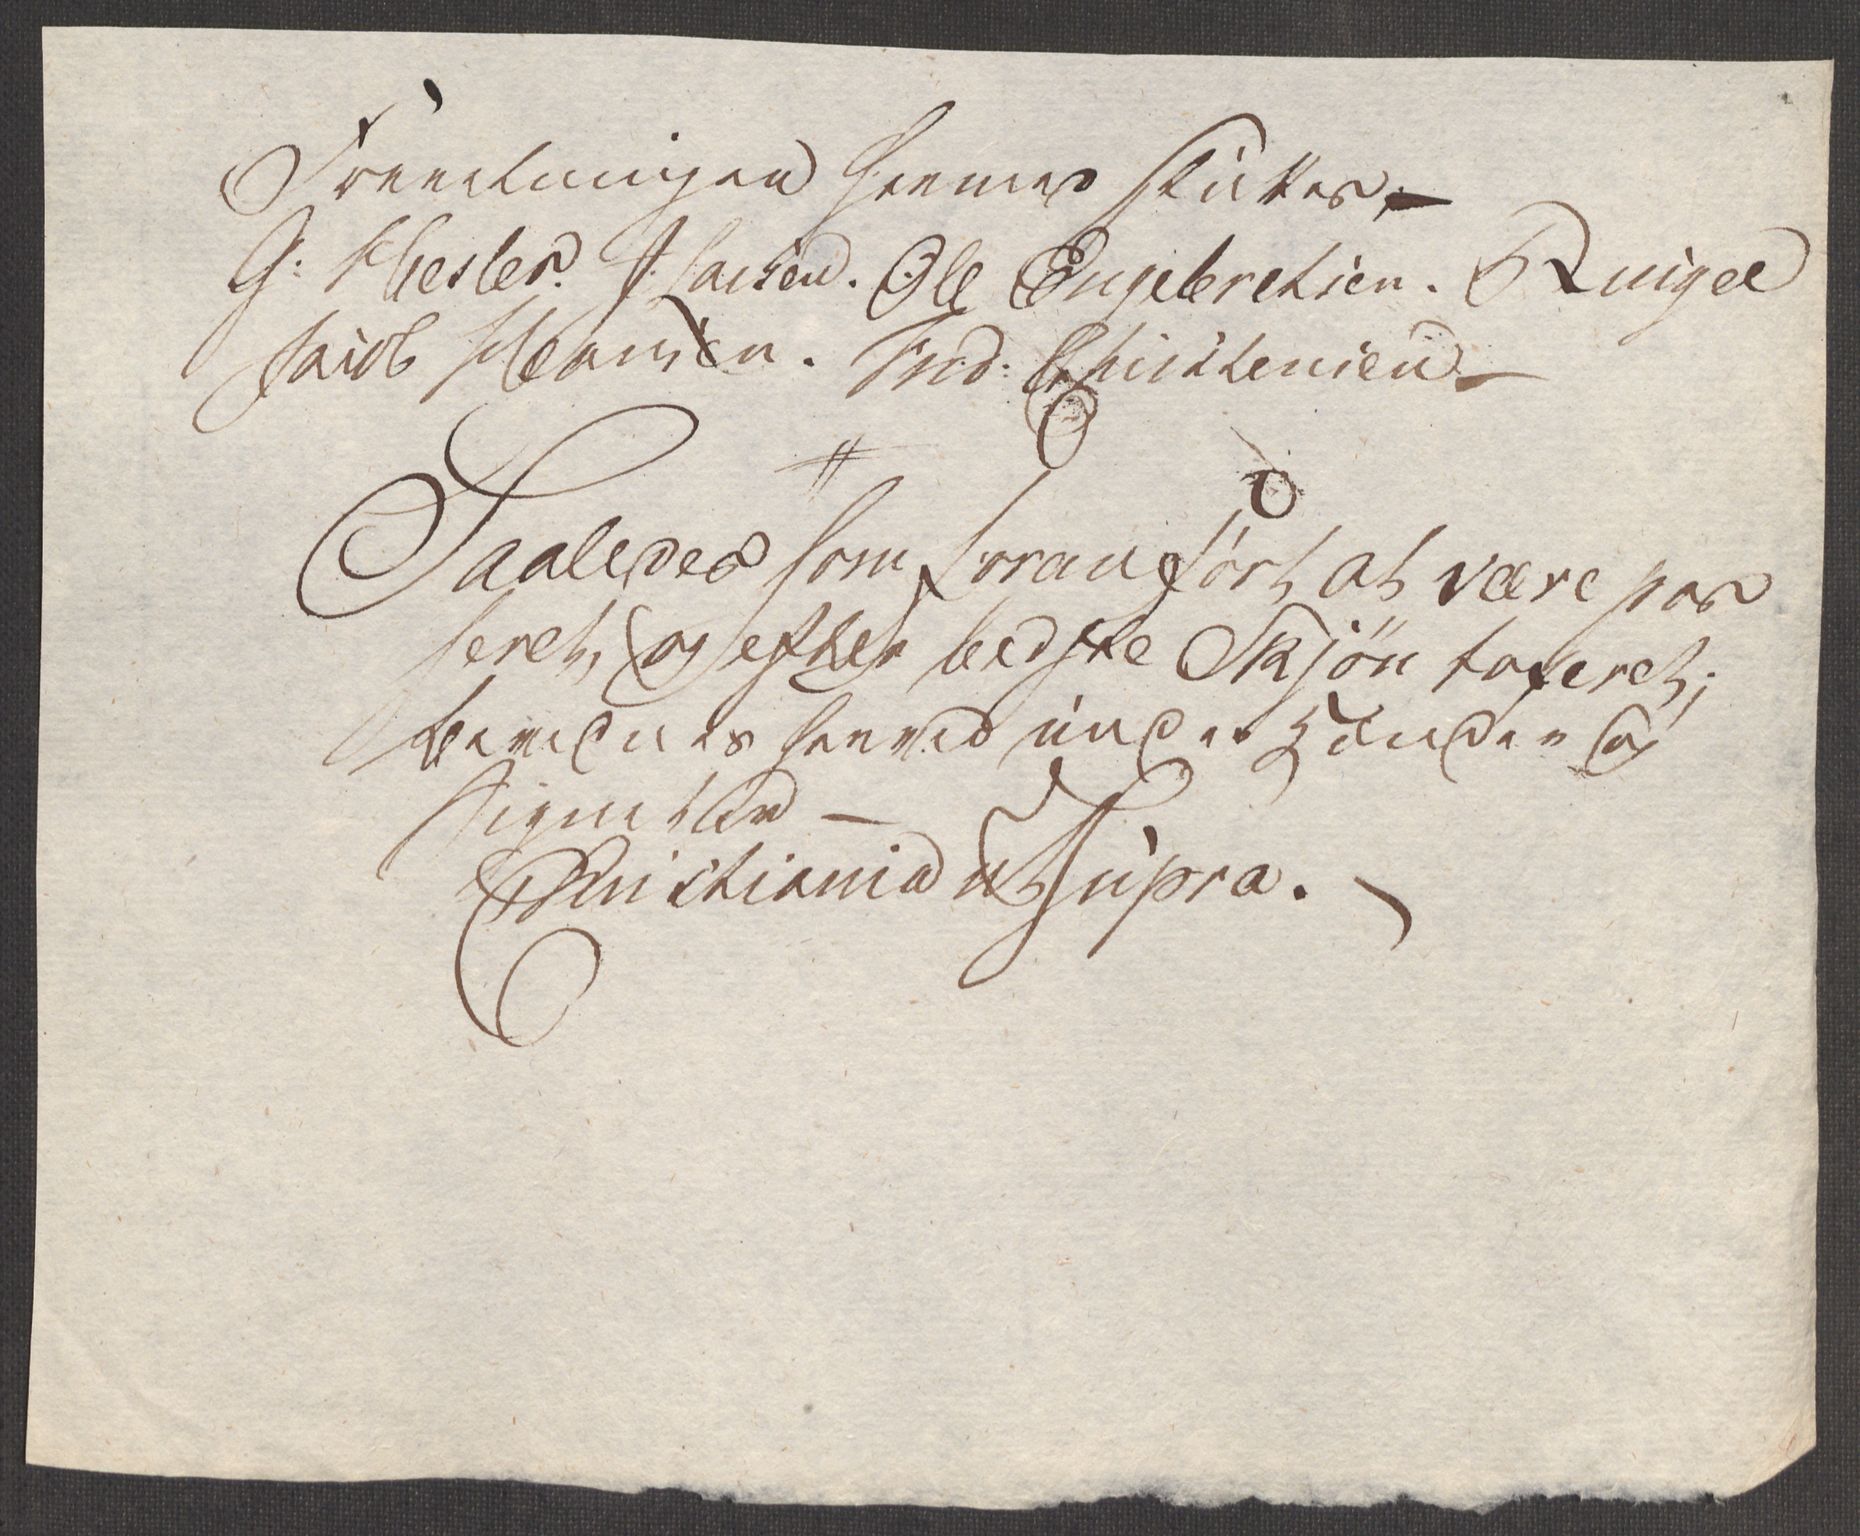 Forretningen hermed sluttes,—
G: Hesler. J. Larsen. Ole Engebretsen. Ruigee
Jacob Hansen. Fred: Christensen —
Saaledes som foranført, at være pas
seret, og efter bedste Skjön taxeret;
bevidnes herved under Hænder og
Signeter —
Christiania ut Supra.